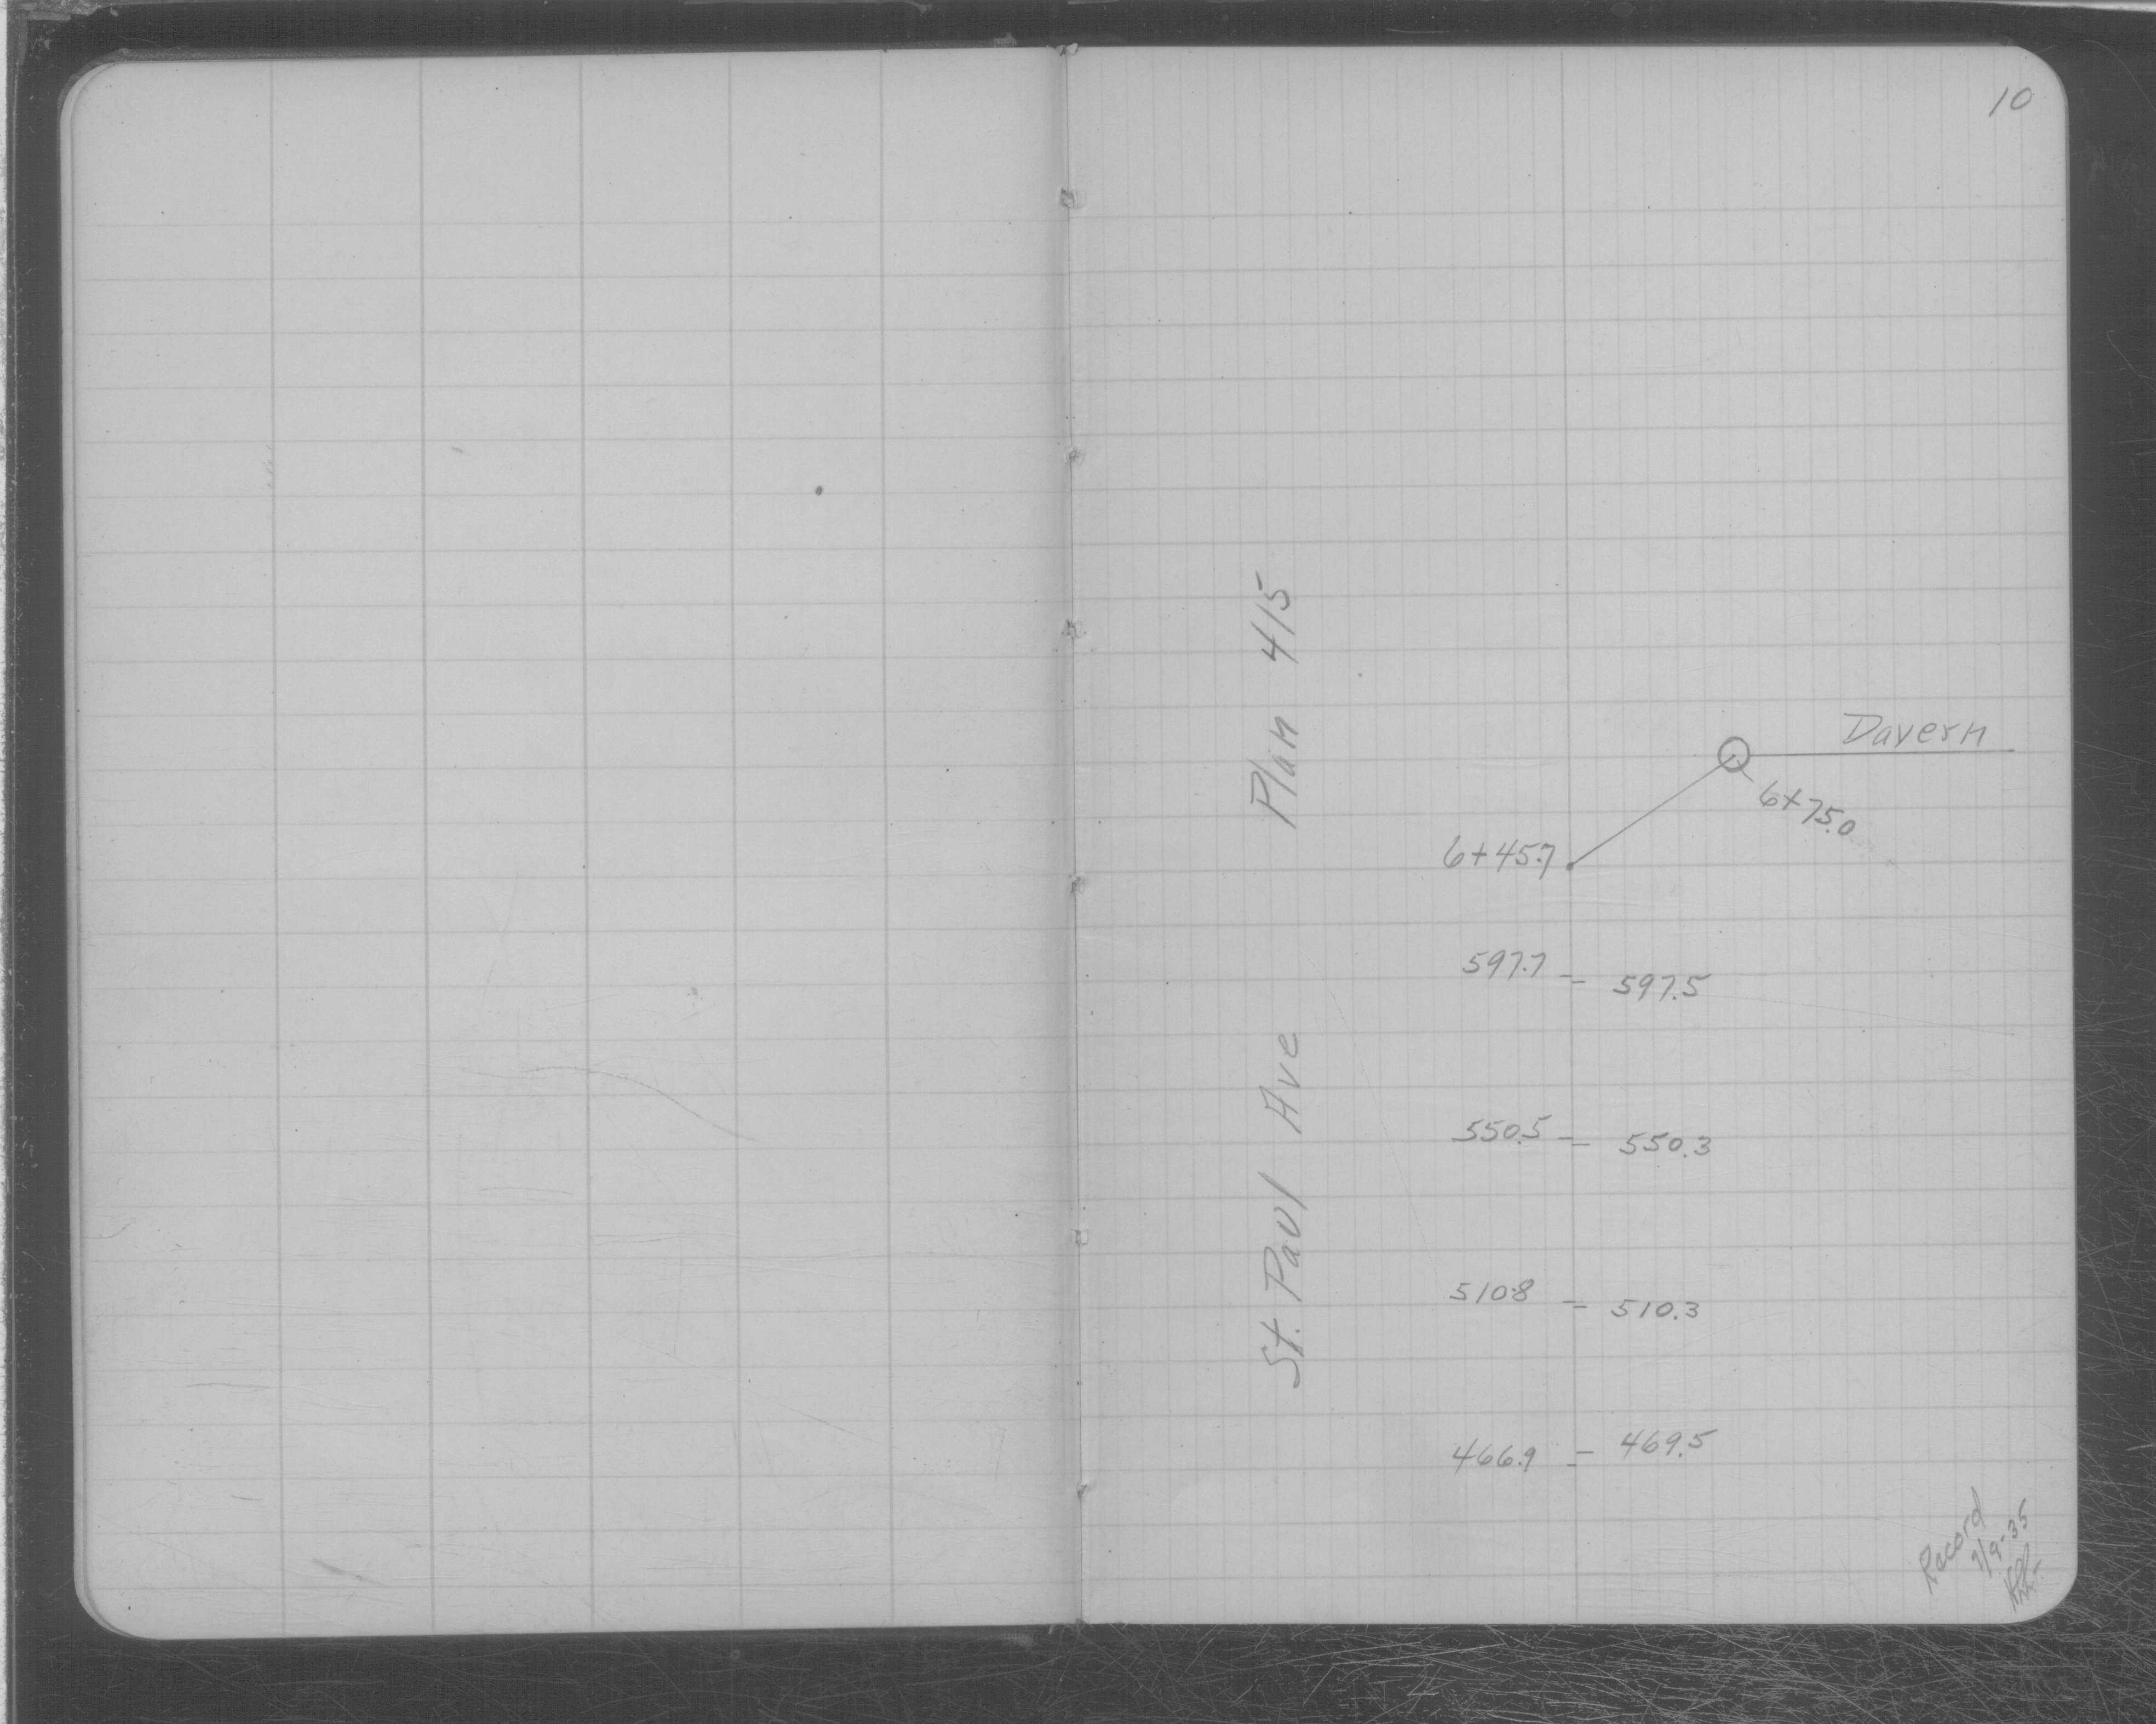 10
Plan 415
St. Paul Ave
Davern
6+75.0
6+45.7
597.7 - - 597.5
550.5 - - 550.3
510.8 - - 510.3
466.9 - - 469.5
Record